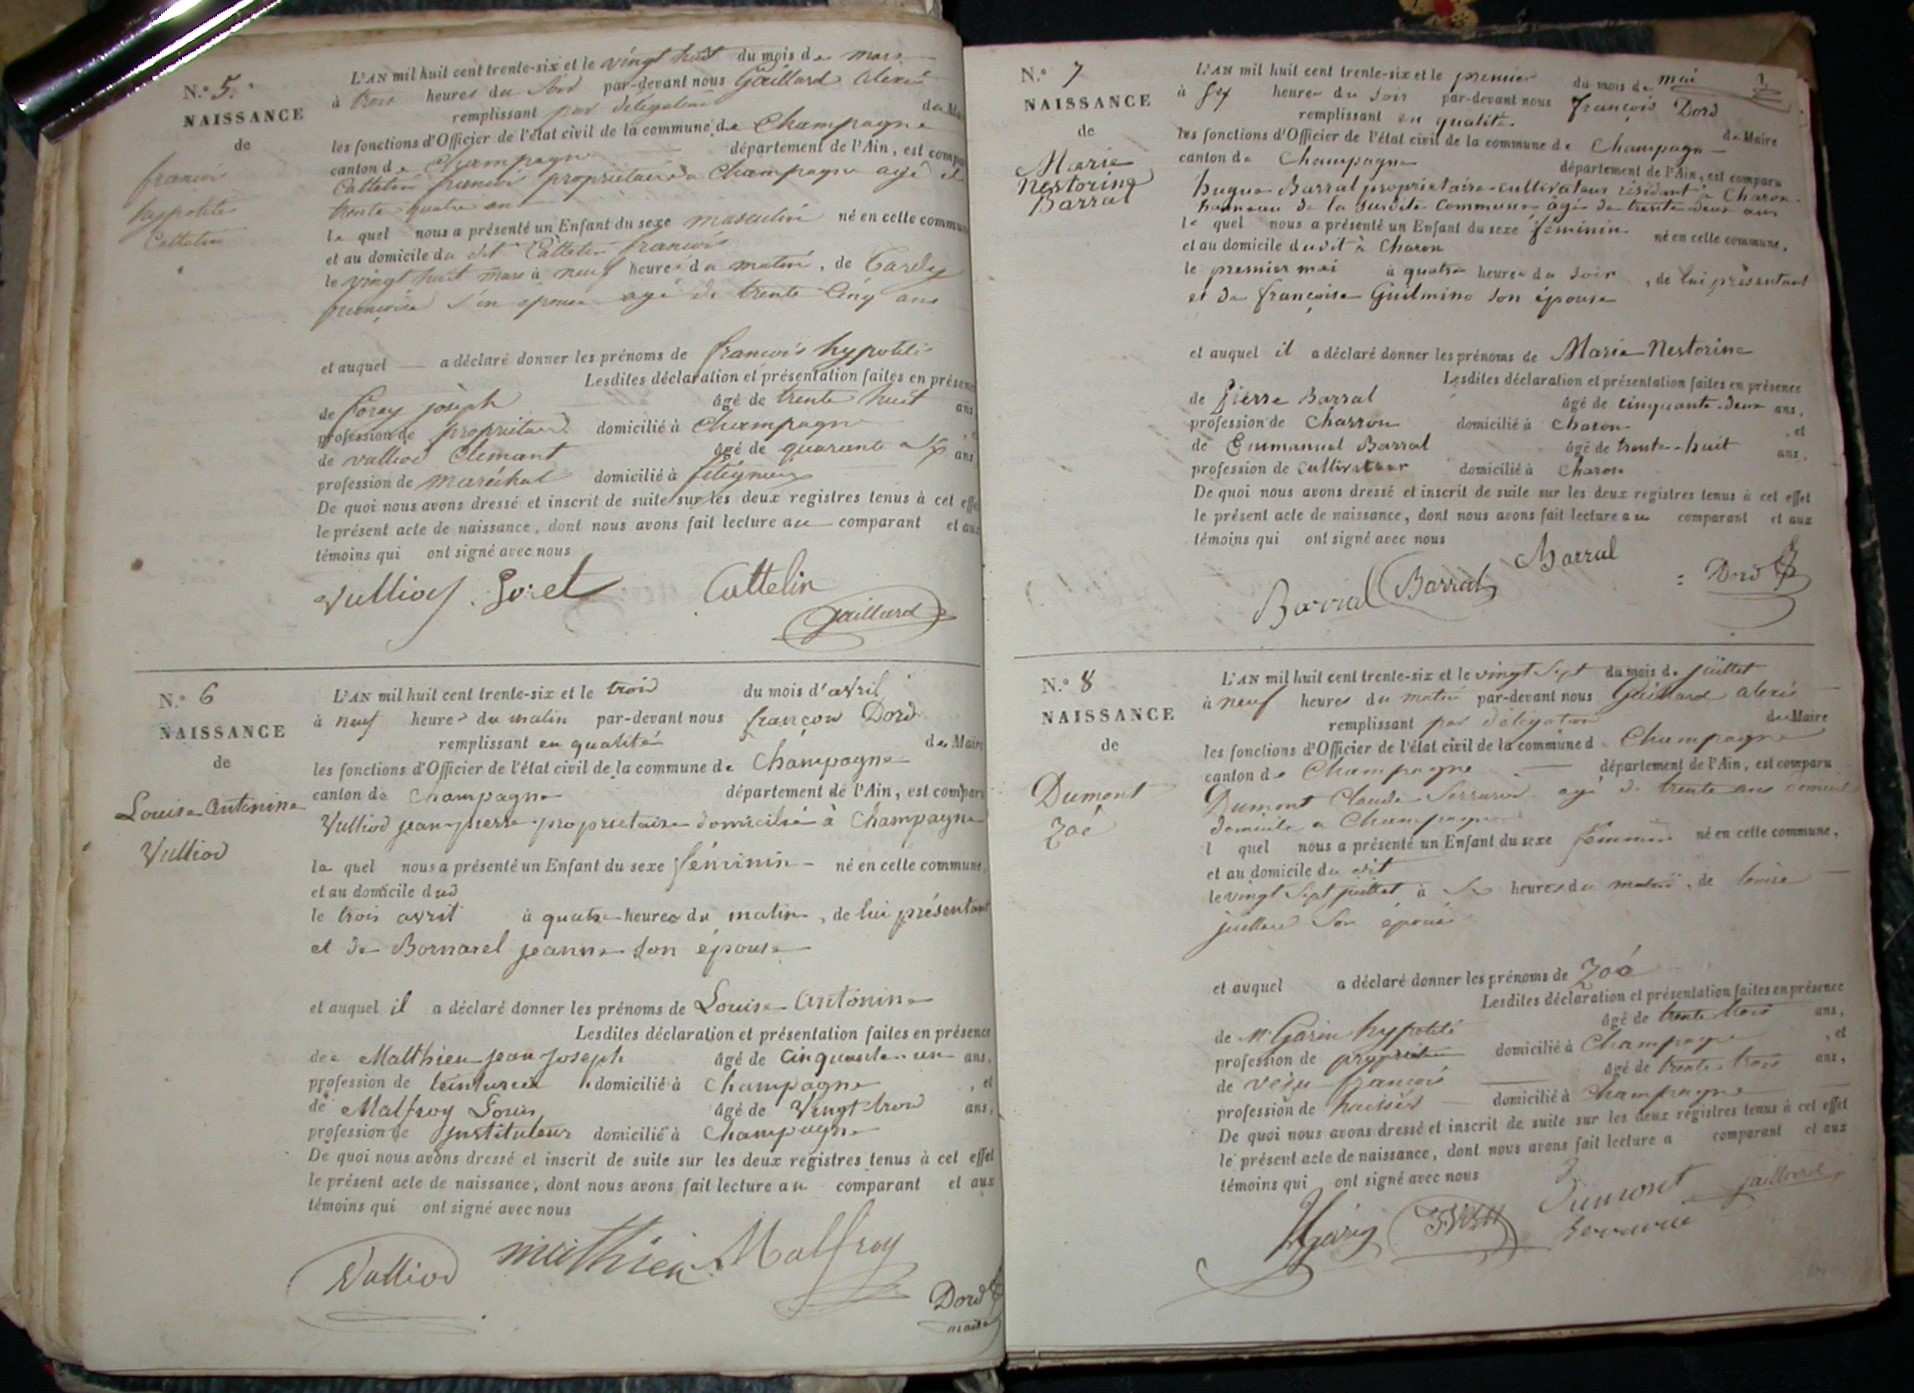 N.º 5.
NAISSANCE
de
françois
hyppolite
Cattelin
L'AN mil huit cent trente-six et le vingt huit du mois de mars
à trois heures du soir par-devant nous Gaillard alexis
remplissant par délégation de Mai
les fonctions d'Officier de l'état civil de la commune de Champagne
canton de Champagne département de l'Ain, est compa
Cattelin françois propriétaire a Champagne agé de
trente quatre an
le quel nous a présenté un Enfant du sexe masculin né en cette commun
et au domicile du dit Cattelin françois
le vingt huit mars à neuf heures du matin, de
françoise son epouse agé de trente Cinq ans
et auquel a déclaré donner les prénoms de francois hypolite
Lesdites déclaration et présentation faites en présen
de joseph âgé de trente huit ans
profession de propriétaire domicilié à Champagne, et
de vulliod Clemant âgé de quarante ans
profession de maréchal domicilié à
De quoi nous avons dressé et inscrit de suite sur les deux registres tenus à cet effe
le présent acte de naissance, dont nous avons fait lecture au comparant et aux
témoins qui ont signé avec nous
Vulliod Cattelin
Gaillard
N.º 6
NAISSANCE
de
Louise antonine
Vulliod
L'AN mil huit cent trente-six et le trois du mois d'avril
à neuf heures du matin par-devant nous françois Dord
remplissant en qualité de Maire
les fonctions d'Officier de l'état civil de la commune de Champagne
canton de Champagne département de l'Ain, est comparu
Vulliod jean-pierre propriétaire domicilié à Champagne
le quel nous a présenté un Enfant du sexe féminin né en cette commune,
et au domicile dud
le trois avril à quatre heures du matin, de lui présentant
et de Bornarel jeanne son épouse
et auquel il a déclaré donner les prénoms de Louise antonine
Lesdites déclaration et présentation faites en présence
de Matthieu jean joseph âgé de Cinquante-un ans,
profession de teinturier domicilié à Champagne, et
de Malfroy Louis âgé de Vingt-trois ans,
profession de instituteur domicilié à Champagne
De quoi nous avons dressé et inscrit de suite sur les deux registres tenus à cet effet
le présent acte de naissance, dont nous avons fait lecture au comparant et aux
témoins qui ont signé avec nous
Vulliod mathieu Malfroy
Dord
maire
N.º 7
NAISSANCE
de
Marie
Nestorine
Barral
L'AN mil huit cent trente-six et le premier du mois de mai
à heures du soir par-devant nous françois Dord
remplissant en qualité de Maire
les fonctions d'Officier de l'état civil de la commune de Champagne
canton de Champagne département de l'Ain, est comparu
hugue Barral propriétaire-cultivateur résidant à Charon
hameau de la susdite commune agé de trente deux ans
le quel nous a présenté un Enfant du sexe féminin né en cette commune,
et au domicile dudit à Charon
le premier mai à quatre heures du soir, de lui présentant
et de françoise Guilmino son épouse
et auquel il a déclaré donner les prénoms de Marie Nestorine
Lesdites déclaration et présentation faites en présence
de Pierre Barral âgé de cinquante-deux ans,
profession de Charron domicilié à Charon, et
de Emmanuel Barral âgé de trente-huit ans,
profession de cultivateur domicilié à Charon
De quoi nous avons dressé et inscrit de suite sur les deux registres tenus à cet effet
le présent acte de naissance, dont nous avons fait lecture au comparant et aux
témoins qui ont signé avec nous
Barral Barral Barral Dord
N.º 8
NAISSANCE
de
Dumont
Zoé
L'AN mil huit cent trente-six et le vingt sept du mois de juillet
à neuf heures du matin par-devant nous Gaillard alexis
remplissant par délégation du Maire
les fonctions d'Officier de l'état civil de la commune d Champagne
canton de Champagne département de l'Ain, est comparu
Dumont Claude Serrurier agé de trente ans
domicile a Champagne
l quel nous a présenté un Enfant du sexe féminin né en cette commune,
et au domicile du dit
le vingt sept juillet à six heures du matin, de louise
son épouse
et auquel a déclaré donner les prénoms de Zoé
Lesdites déclaration et présentation faites en présence
de Mr Garin hypolite âgé de trente trois ans,
profession de domicilié à Champagne, et
de françois âgé de trente trois ans,
profession de huissier domicilié à Champagne
De quoi nous avons dressé et inscrit de suite sur les deux registres tenus à cet effet
le présent acte de naissance, dont nous avons fait lecture a comparant et aux
témoins qui ont signé avec nous
Dumont Gaillard
Serrurié